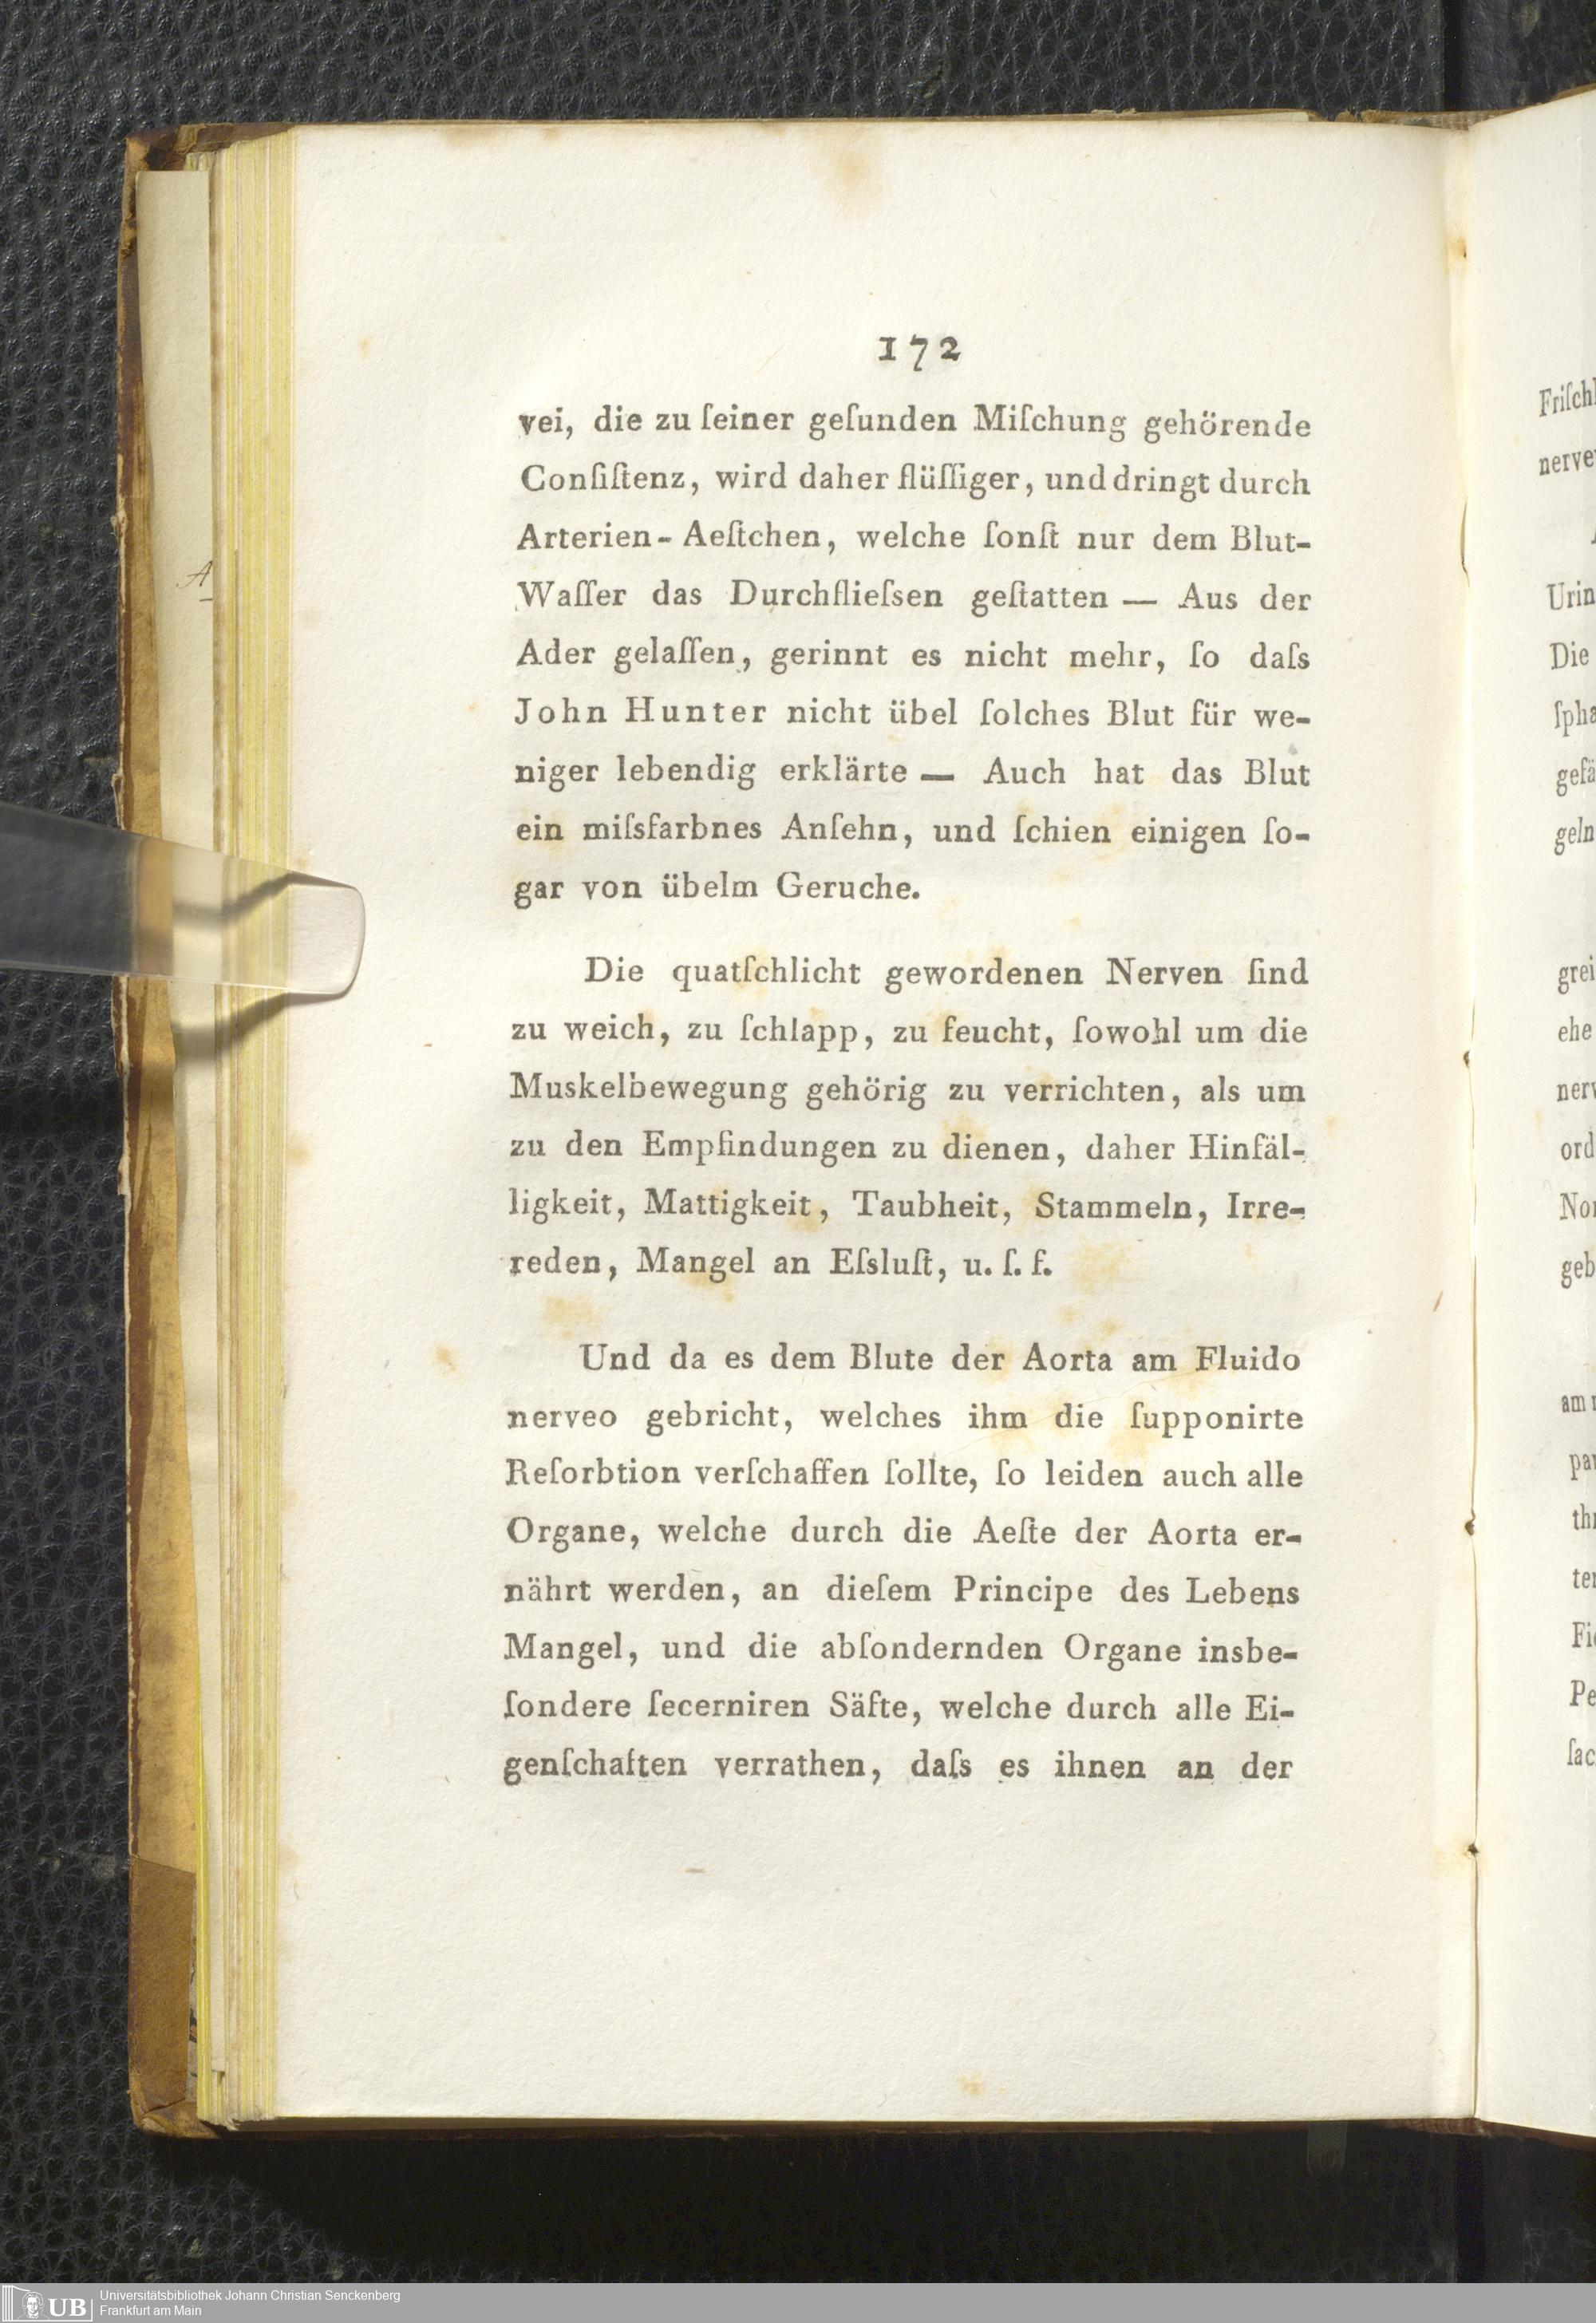 172
vei, die zu ſeiner geſunden Miſchung gehörende
Conſiſtenz, wird daher flüſſiger, und dringt durch
Arterien-Aeſtchen, welche ſonſt nur dem Blut-
Waſſer das Durchflieſsen geſtatten — Aus der
Ader gelaſſen, gerinnt es nicht mehr, ſo daſs
John Hunter nicht übel ſolches Blut für we-
niger lebendig erklärte — Auch hat das Blut
ein miſsfarbnes Anſehn, und ſchien einigen ſo-
gar von übelm Geruche.
Die quatſchlicht gewordenen Nerven ſind
zu weich, zu ſchlapp, zu feucht, ſowohl um die
Muskelbewegung gehörig zu verrichten, als um
zu den Empfindungen zu dienen, daher Hinfäl-
ligkeit, Mattigkeit, Taubheit, Stammeln, Irre-
reden, Mangel an Eſsluſt, u. ſ. f.
Und da es dem Blute der Aorta am Fluido
nerveo gebricht, welches ihm die ſupponirte
Reſorbtion verſchaffen ſollte, ſo leiden auch alle
Organe, welche durch die Aeſte der Aorta er-
nährt werden, an dieſem Principe des Lebens
Mangel, und die abſondernden Organe insbe-
ſondere ſecerniren Säfte, welche durch alle Ei-
genſchaften verrathen, daſs es ihnen an der
A
Urin
Die
ehe
UB
Universitätsbibliothek Johann Christian Senckenberg
Frankfurt am Main